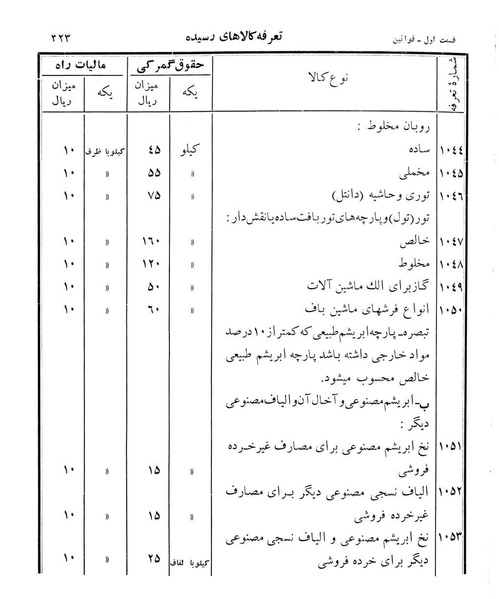 قسمت اول - قوانین تعرفه کالاهای رسیده ۲۲۳
شمارهٔ تعرفه نوع کالا حقوق گمرکی مالیات راه
یکه میزان ریال یکه میزان ریال
روبان مخلوط :
۱۰٤٤ ساده کیلو ٤٥ کیلوبا ظرف ۱۰
۱۰٤٥ مخملی » ٥٥ » ۱۰
۱۰٤٦ توری و حاشیه (دانتل) » ۷٥ » ۱۰
تور (تول) و پارچه‌های تور بافت ساده یا نقش دار :
۱۰٤۷ خالص » ۱٦۰ » ۱۰
۱۰٤۸ مخلوط » ۱۲۰ » ۱۰
۱۰٤۹ گاز برای الك ماشین آلات » ٥۰ » ۱۰
۱۰٥۰ انواع فرشهای ماشین باف » ٦۰ » ۱۰
تبصره ـ پارچه ابریشم طبیعی که کمتر از ۱۰ درصد
مواد خارجی داشته باشد پارچه ابریشم طبیعی
خالص محسوب میشود.
ب ـ ابریشم مصنوعی و آخال آن و الیاف مصنوعی
دیگر :
۱۰٥۱ نخ ابریشم مصنوعی برای مصارف غیرخرده
فروشی » ۱٥ » ۱۰
۱۰٥۲ الیاف نسجی مصنوعی دیگر برای مصارف
غیرخرده فروشی » ۱٥ » ۱۰
۱۰٥۳ نخ ابریشم مصنوعی و الیاف نسجی مصنوعی
دیگر برای خرده فروشی کیلوبا لفاف ۲٥ » ۱۰